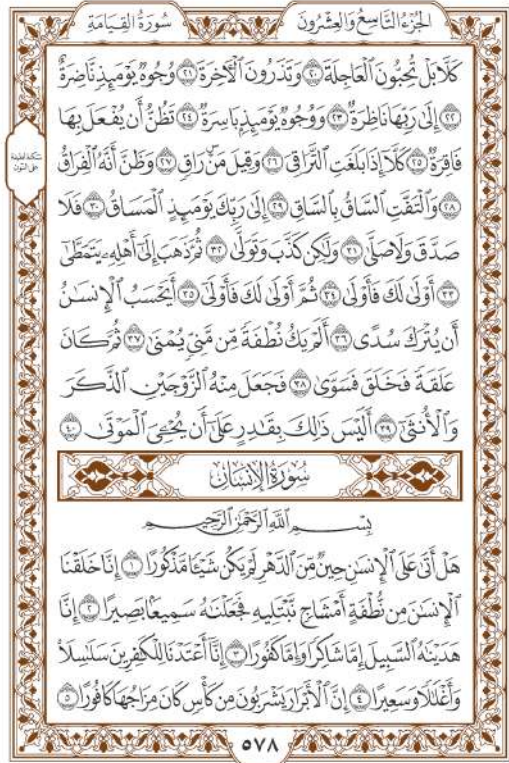 الجُزْءُ التَّاسِعُ وَالعِشْرُونَ
سُورَةُ القِيَامَةِ
كَلَّا بَلْ تُحِبُّونَ ٱلْعَاجِلَةَ ۝٢٠ وَتَذَرُونَ ٱلْأٓخِرَةَ ۝٢١ وُجُوهٌ يَوْمَئِذٖ نَّاضِرَةٌ
۝٢٢ إِلَىٰ رَبِّهَا نَاظِرَةٞ ۝٢٣ وَوُجُوهٞ يَوْمَئِذِۭ بَاسِرَةٞ ۝٢٤ تَظُنُّ أَن يُفْعَلَ بِهَا
فَاقِرَةٞ ۝٢٥ كَلَّآ إِذَا بَلَغَتِ ٱلتَّرَاقِيَ ۝٢٦ وَقِيلَ مَنْۜ رَاقٖ ۝٢٧ وَظَنَّ أَنَّهُ ٱلْفِرَاقُ
۝٢٨ وَٱلْتَفَّتِ ٱلسَّاقُ بِٱلسَّاقِ ۝٢٩ إِلَىٰ رَبِّكَ يَوْمَئِذٍ ٱلْمَسَاقُ ۝٣٠ فَلَا
صَدَّقَ وَلَا صَلَّىٰ ۝٣١ وَلَٰكِن كَذَّبَ وَتَوَلَّىٰ ۝٣٢ ثُمَّ ذَهَبَ إِلَىٰٓ أَهْلِهِۦ يَتَمَطَّىٰٓ
۝٣٣ أَوْلَىٰ لَكَ فَأَوْلَىٰ ۝٣٤ ثُمَّ أَوْلَىٰ لَكَ فَأَوْلَىٰٓ ۝٣٥ أَيَحْسَبُ ٱلْإِنسَٰنُ
أَن يُتْرَكَ سُدًى ۝٣٦ أَلَمْ يَكُ نُطْفَةٗ مِّن مَّنِيّٖ يُمْنَىٰ ۝٣٧ ثُمَّ كَانَ
عَلَقَةٗ فَخَلَقَ فَسَوَّىٰ ۝٣٨ فَجَعَلَ مِنْهُ ٱلزَّوْجَيْنِ ٱلذَّكَرَ
وَٱلْأُنثَىٰٓ ۝٣٩ أَلَيْسَ ذَٰلِكَ بِقَٰدِرٍ عَلَىٰٓ أَن يُحْـِۧيَ ٱلْمَوْتَىٰ ۝٤٠
سُورَةُ الإِنسَانِ
بِسْمِ ٱللَّهِ ٱلرَّحْمَٰنِ ٱلرَّحِيمِ
هَلْ أَتَىٰ عَلَى ٱلْإِنسَٰنِ حِينٞ مِّنَ ٱلدَّهْرِ لَمْ يَكُن شَيْـٔٗا مَّذْكُورًا ۝١ إِنَّا خَلَقْنَا
ٱلْإِنسَٰنَ مِن نُّطْفَةٍ أَمْشَاجٖ نَّبْتَلِيهِ فَجَعَلْنَٰهُ سَمِيعَۢا بَصِيرًا ۝٢ إِنَّا
هَدَيْنَٰهُ ٱلسَّبِيلَ إِمَّا شَاكِرٗا وَإِمَّا كَفُورًا ۝٣ إِنَّآ أَعْتَدْنَا لِلْكَٰفِرِينَ سَلَٰسِلَاْ
وَأَغْلَٰلٗا وَسَعِيرًا ۝٤ إِنَّ ٱلْأَبْرَارَ يَشْرَبُونَ مِن كَأْسٖ كَانَ مِزَاجُهَا كَافُورًا ۝٥
سكتة لطيفة
على النون
٥٧٨